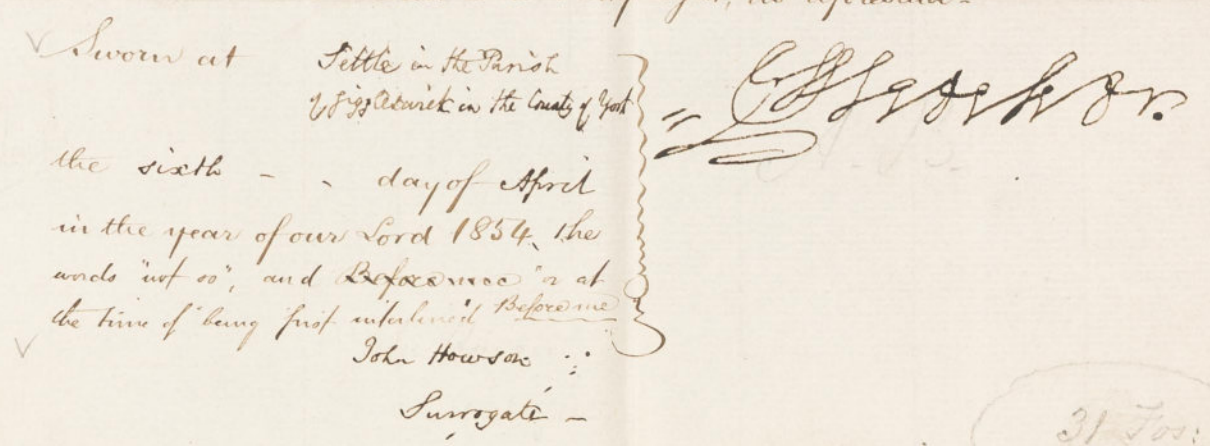 Sworn at Settle in the Parish
of Giggleswick in the County of York
the sixth - - day of April
in the year of our Lord 1854, the
words "not so", and Before mee "or at
the time of" being first interlined Before me
John Howson
Surrogate -
31 Fos: